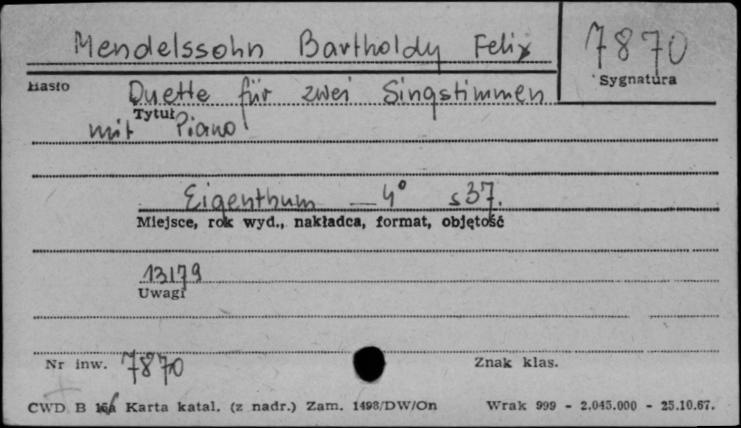 Mendelssohn Bartholdy Felix
7870
Sygnatura
Hasło
Duette für zwei Singstimmen
Tytuł
mit Piano
Eigenthum — 4° s 37.
Miejsce, rok wyd., nakładca, format, objętość
13179
Uwagi
Nr inw. 7870
Znak klas.
CWD B Karta katal. (z nadr.) Zam. 1498/DW/On
Wrak 999 - 2.045.000 - 25.10.67.